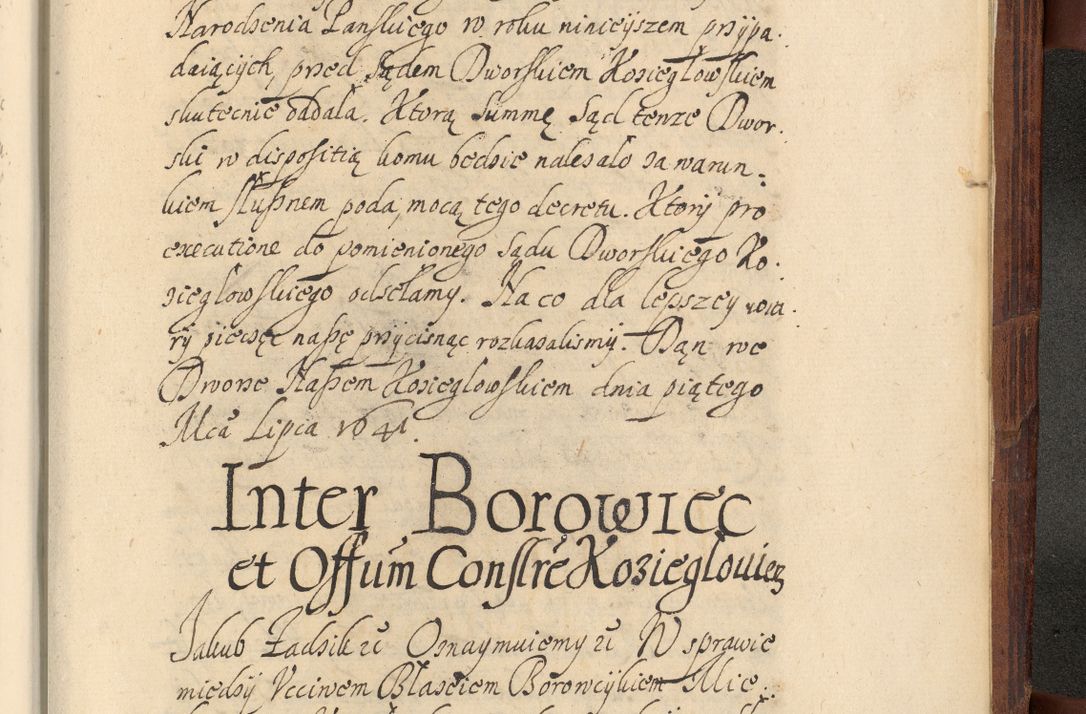 Narodzenia Panskiego w roku ninieÿszem prziÿpa-
daiącÿch, przed Sądem Dworskiem Kozieglowskiem
skutecnie oddala. Ktorą Summę Sąd tenze Dwor-
ski w dispositią komu będzie nalezalo za warun-
kiem slusznem poda, mocą tego decretu. Ktorÿ pro
executione do pomienionego Sądu Dworskiego Ko-
zieglowskiego odsełamÿ. Na co dla lepszeÿ wia-
rÿ pieczęc naszę przÿcisnąc rozkazalismÿ. Dąn we
Dworze Naszem Kozieglowskiem dnia piątego
Mcã Lipca 1641.
Inter Borowiec
et Offum Conslre Kozieglouien
Jakub Zadzik zc̃ Oznaymuiemy zc̃ W sprawie
miedzÿ Vcciwem Blazeiem Borowcÿkiem Mie-